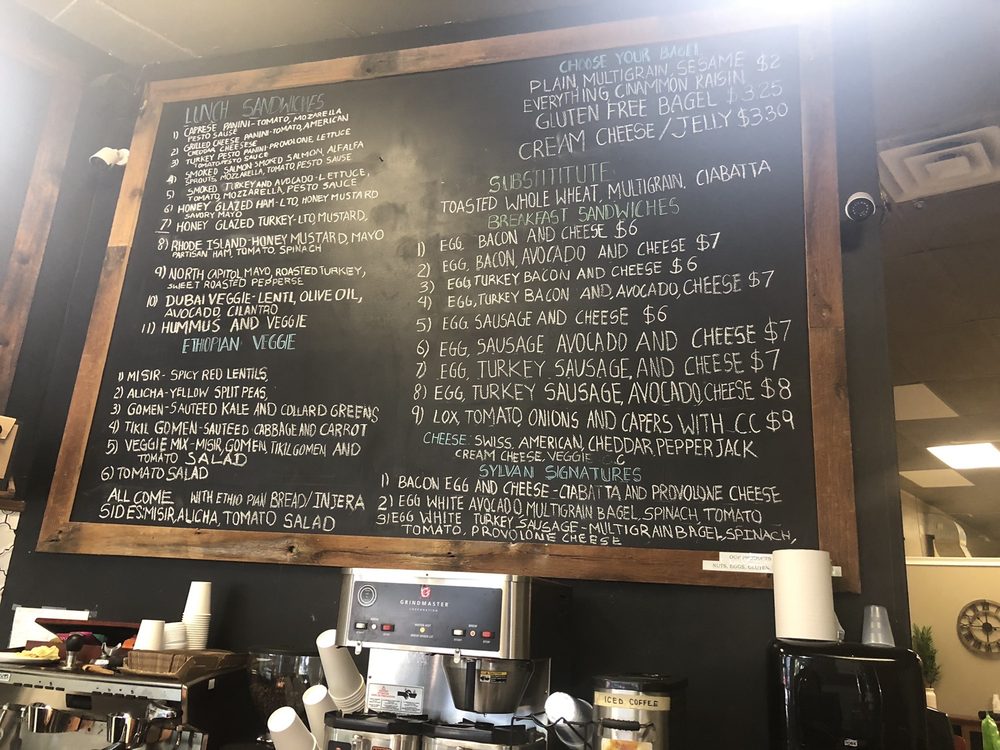 LUNCH SANDWICHES
1) CAPRESE PANINI-TOMATO, MOZARELLA
PESTO SAUSE
2) GRILLED CHEESE PANINI-TOMATO, AMERICAN
CHEDDAR CHEESESE
3) TURKEY PESTO PANINI-PROVOLONE, LETTUCE
TOMATO PESTO SAUCE
4) SMOKED SALMON-SMOKED SALMON, ALFALFA
SPROUTS, MOZZARELLA, TOMATO, PESTO SAUSE
5) SMOKED TURKEY AND AVOCADO-LETTUCE,
TOMATO, MOZZARELLA, PESTO SAUCE
6) HONEY GLAZED HAM-LTO, HONEY MUSTARD
SAVORY MAYO
7) HONEY GLAZED TURKEY-LTO, MUSTARD,
8) RHODE ISLAND-HONEY MUSTARD, MAYO
PARTISAN HAM, TOMATO, SPINACH
9) NORTH CAPITOL MAYO, ROASTED TURKEY,
SWEET ROASTED PEPPERSE
10) DUBAI VEGGIE-LENTIL, OLIVE OIL,
AVOCADO, CILANTRO
11) HUMMUS AND VEGGIE
ETHIOPIAN VEGGIE
1) MISIR-SPICY RED LENTILS
2) ALICHA-YELLOW SPLIT PEAS,
3) GOMEN-SAUTEED KALE AND COLLARD GREENS
4) TIKIL GOMEN-SAUTEED CABBAGE AND CARROT
5) VEGGIE MIX-MISIR, GOMEN, TIKIL GOMEN AND
TOMATO SALAD
6) TOMATO SALAD
ALL COME WITH ETHIO PIAN BREAD/INJERA
SIDES: MISIR, ALICHA, TOMATO SALAD
CHOOSE YOUR BAGEL
PLAIN, MULTIGRAIN, SESAME $2
EVERYTHING CINAMMON RAISIN
GLUTEN FREE BAGEL $3.25
CREAM CHEESE/JELLY $3.30
SUBSTITITUTE
TOASTED WHOLE WHEAT, MULTIGRAIN, CIABATTA
BREAKFAST SANDWICHES
1) EGG, BACON AND CHEESE $6
2) EGG, BACON, AVOCADO AND CHEESE $7
3) EGG, TURKEY BACON AND CHEESE $6
4) EGG, TURKEY BACON AND, AVOCADO, CHEESE $7
5) EGG. SAUSAGE AND CHEESE $6
6) EGG, SAUSAGE AVOCADO AND CHEESE $7
7) EGG, TURKEY SAUSAGE, AND CHEESE $7
8) EGG, TURKEY SAUSAGE, AVOCADO, CHEESE $8
9) LOX, TOMATO, ONIONS AND CAPERS WITH C.C $9
CHEESE: SWISS, AMERICAN, CHEDDAR, PEPPER JACK
CREAM CHEESE, VEGGIE
SYLVAN SIGNATURES
1) BACON EGG AND CHEESE-CIABATTA AND PROVOLONE CHEESE
2) EGG WHITE AVOCADO, MULTIGRAIN BAGEL, SPINACH, TOMATO
3) EGG WHITE TURKEY SAUSAGE-MULTIGRAIN BAGEL, SPINACH,
TOMATO, PROVOLONE CHEESE
OUR PRODUCTS
NUTS, EGGS, GLUTEN,
GRINDMASTER
CORPORATION
ICED COFFEE